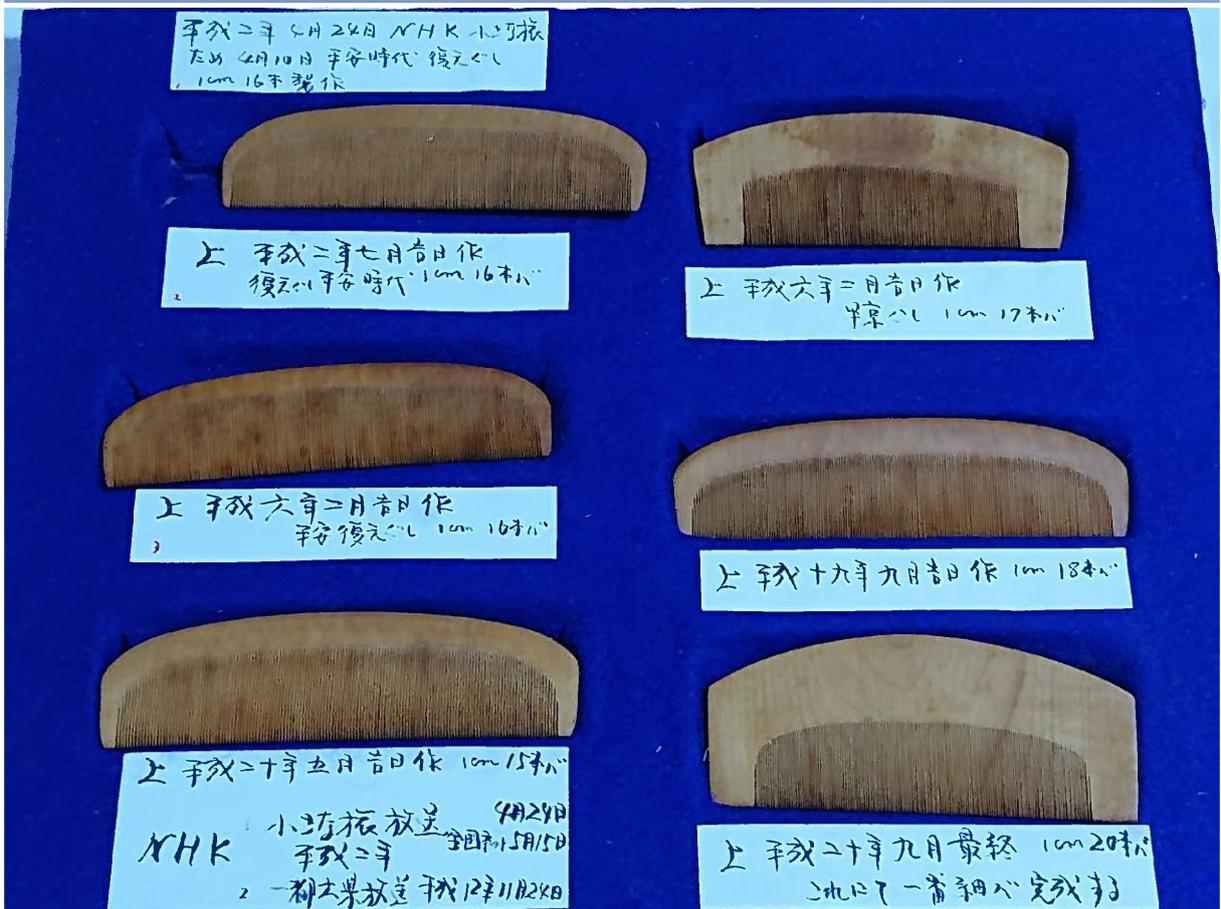 平成二年4月24日 NHK 小さな旅
ため 4月10日 平安時代 復元ぐし
1cm 16本製作
上 平成二年七月吉日作
復元ぐし平安時代 1cm 16本バ
2
上 平成六年二月吉日作
ぐし 1cm 17本バ
上 平成六年二月吉日作
平安復元ぐし 1cm 16本バ
3
上 平成十九年九月吉日作 1cm 18本バ
上 平成二十年五月吉日作 1cm 15本バ
小さな旅放送 4月24日
NHK 平成二年 全国ネット5月15日
2 一都六県放送 平成12年11月24日
上 平成二十年九月最終 1cm 20本バ
これにて一番細バ完成する